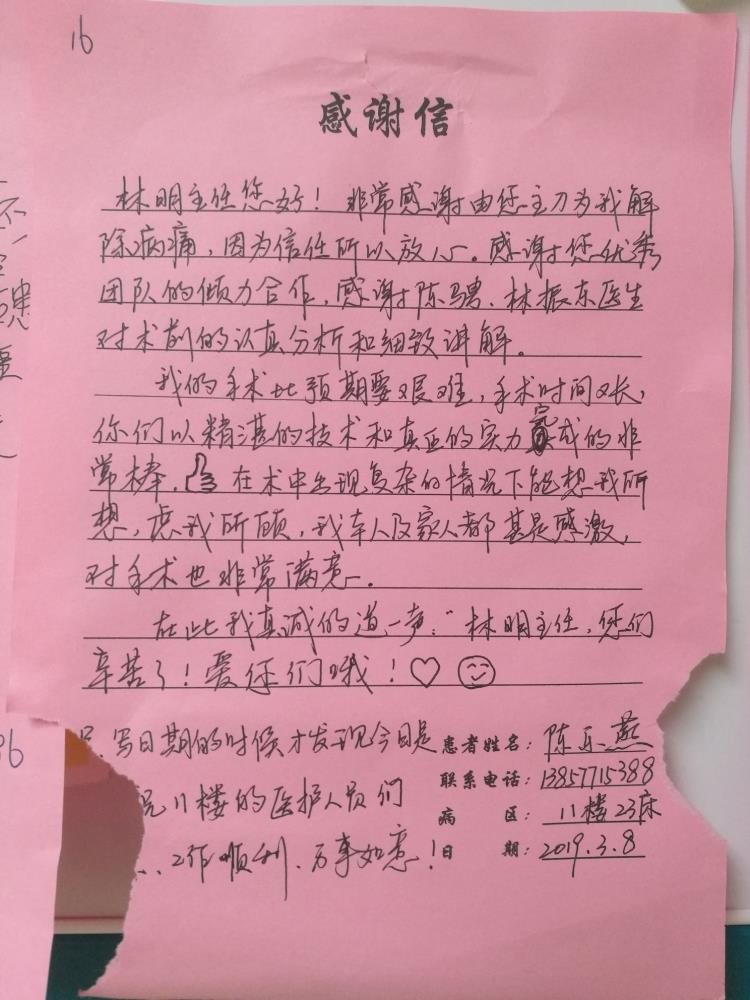 16
感谢信
林明主任您好！非常感谢由您主刀为我解
除病痛，因为信任所以放心。感谢您优秀
团队的倾力合作，感谢陈骋、林振东医生
对术前的认真分析和细致讲解。
我的手术比预期要艰难，手术时间又长，
你们以精湛的技术和真正的实力完成的非
常棒，在术中出现复杂的情况下能想我所
想，虑我所顾，我本人及家人都甚是感激，
对手术也非常满意。
在此我真诚的道一声："林明主任，您们
辛苦了！爱你们哦！
写日期的时候才发现今日是
祝11楼的医护人员们
工作顺利、万事如意！
患者姓名：陈乐燕
联系电话：13857715388
病区：11楼23床
日期：2019.3.8